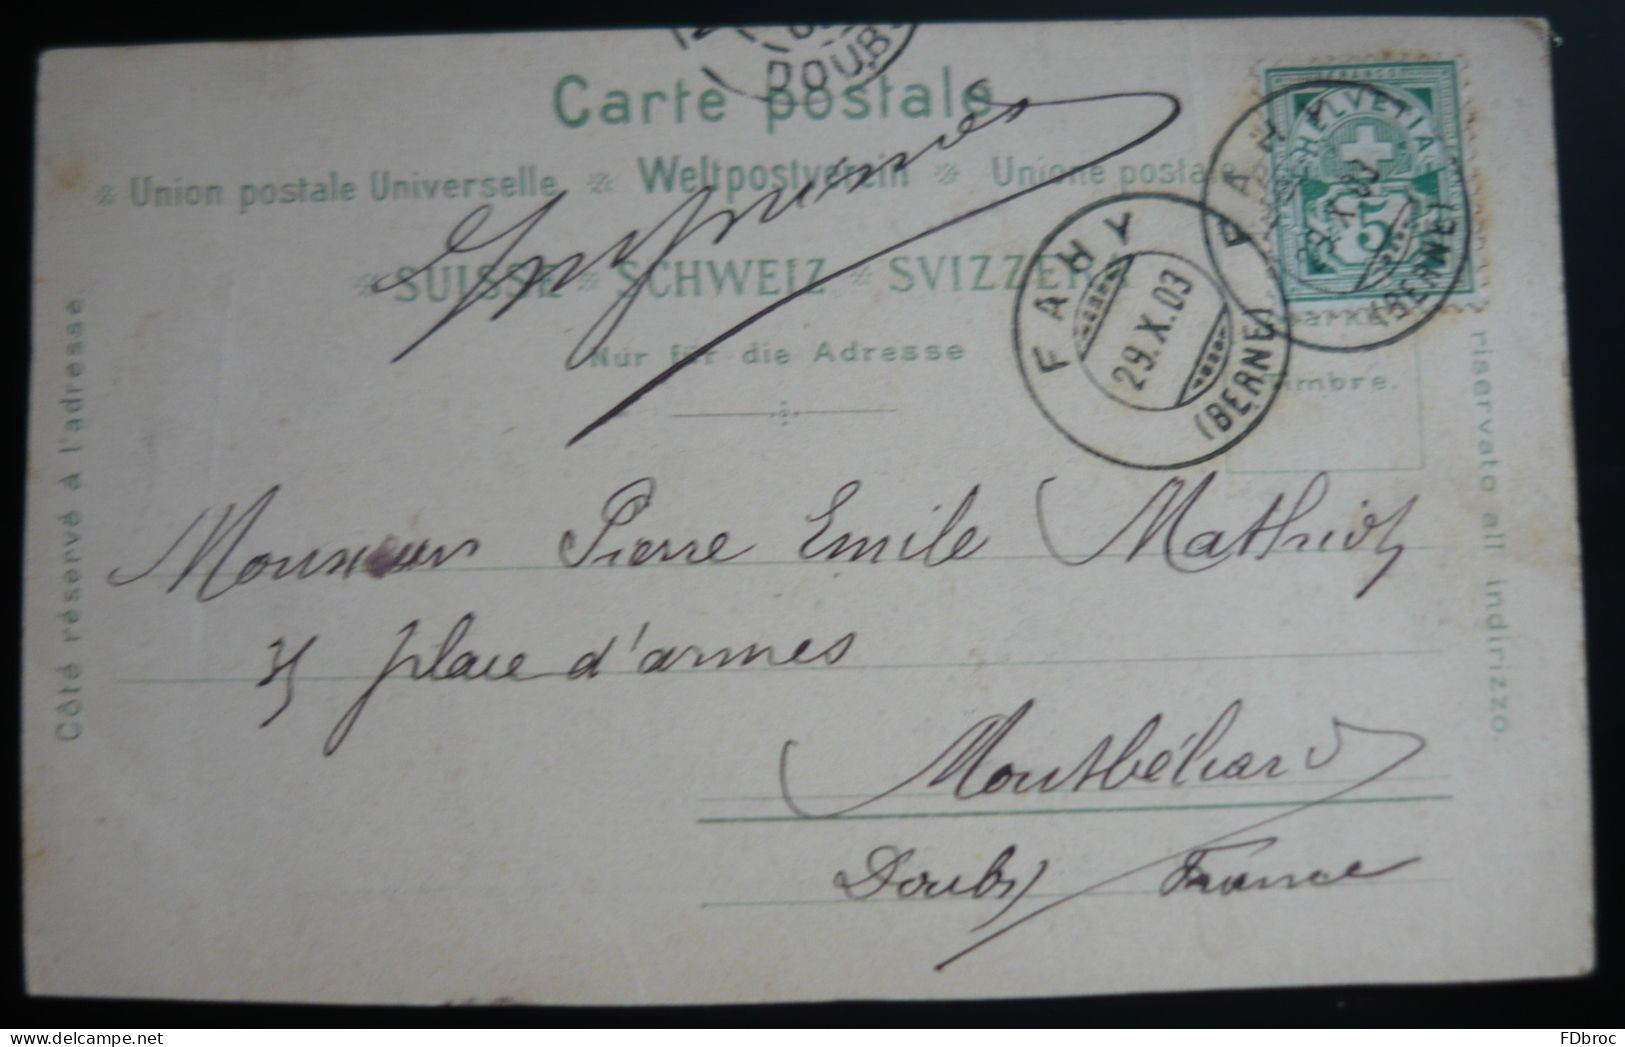 DOUBS
Carte postale
Imprimés
Union postale Universelle Weltpostverein Unione postale
SUISSE SCHWEIZ SVIZZERA
Nur für die Adresse
HELVETIA
5
FAHY
29.X.03
(BERNE)
FAHY
(BERNE)
Côté réservé à l'adresse.
riservato all indirizzo.
Monsieur Pierre Emile Mathiot
place d'armes
Montbéliard
Doubs France
FDbroc